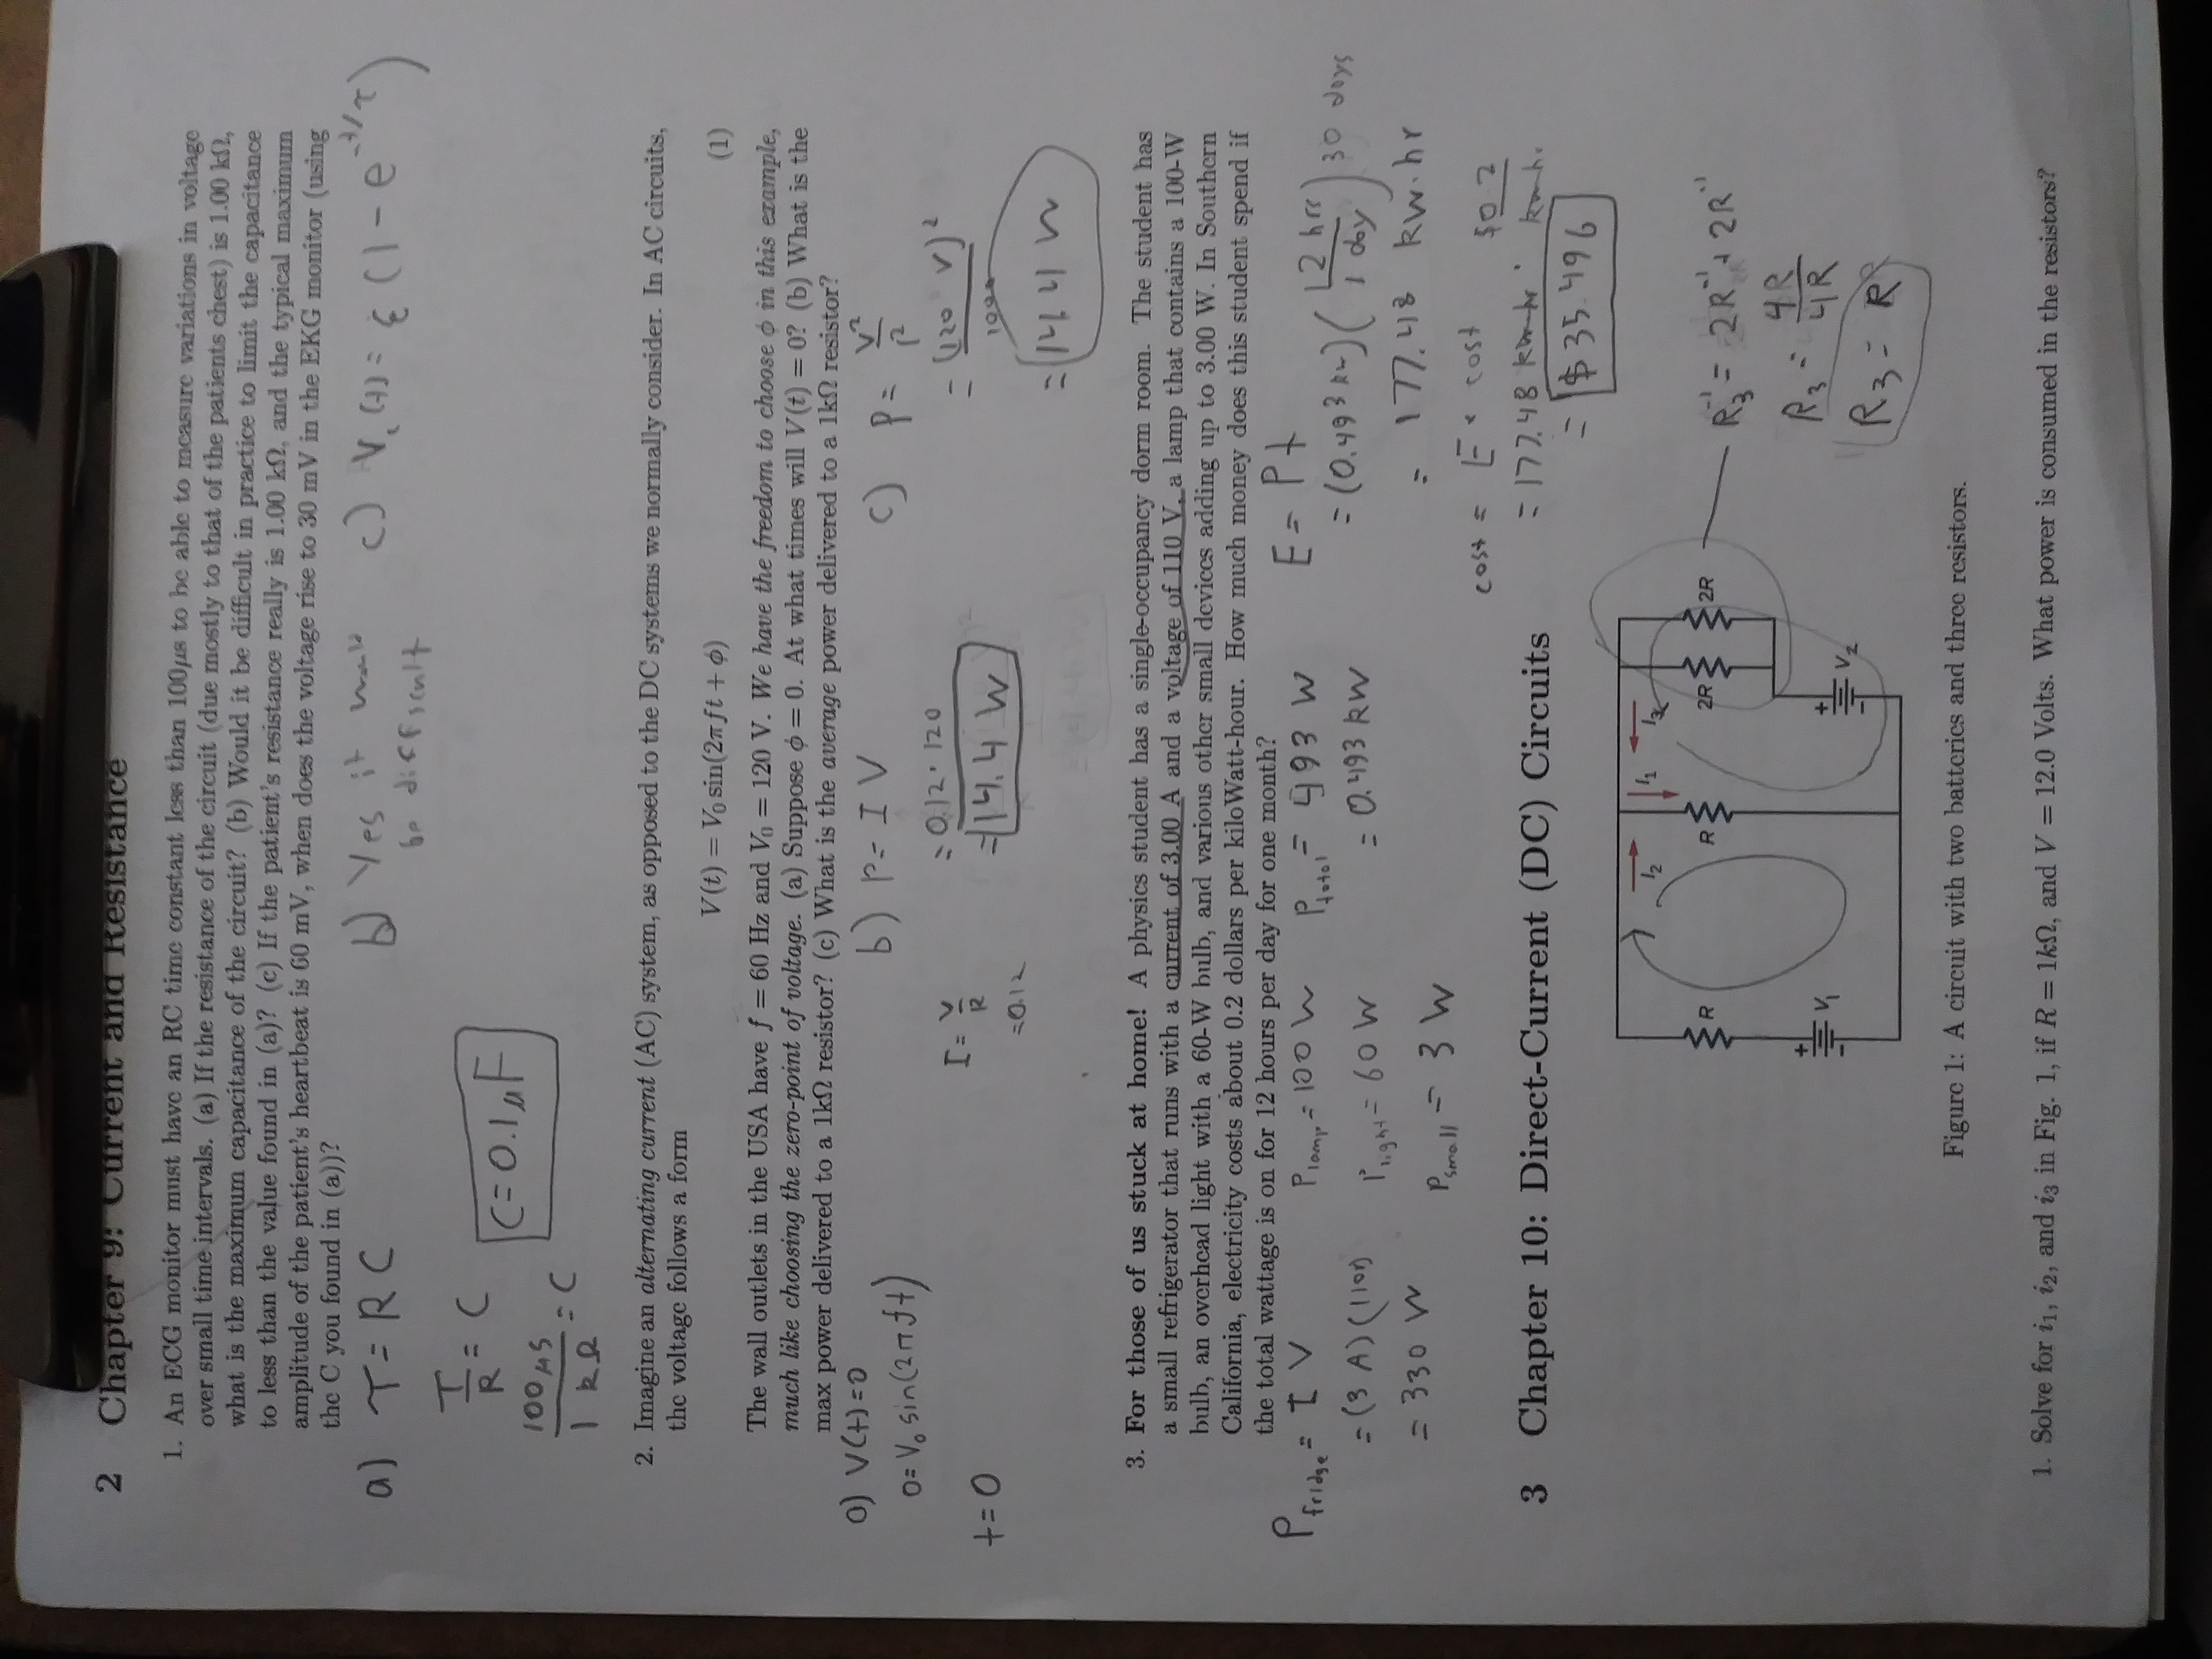 2 Chapter 9: Current and Resistance
1. An ECG monitor must have an RC time constant less than 100μs to be able to measure variations in voltage
over small time intervals. (a) If the resistance of the circuit (due mostly to that of the patients chest) is 1.00 kΩ,
what is the maximum capacitance of the circuit? (b) Would it be difficult in practice to limit the capacitance
to less than the value found in (a)? (c) If the patient's resistance really is 1.00 kΩ, and the typical maximum
amplitude of the patient's heartbeat is 60 mV, when does the voltage rise to 30 mV in the EKG monitor (using
the C you found in (a))?
a) τ = RC
τ/R = C
100 μs / 1 kΩ = C
C = 0.1 μF
b) Yes it would
be difficult
c) Vc(t) = ε(1 - e^-t/τ)
2. Imagine an alternating current (AC) system, as opposed to the DC systems we normally consider. In AC circuits,
the voltage follows a form
V(t) = V₀ sin(2πft + φ) (1)
The wall outlets in the USA have f = 60 Hz and V₀ = 120 V. We have the freedom to choose φ in this example,
much like choosing the zero-point of voltage. (a) Suppose φ = 0. At what times will V(t) = 0? (b) What is the
max power delivered to a 1kΩ resistor? (c) What is the average power delivered to a 1kΩ resistor?
a) V(t) = 0
0 = V₀ sin(2πft)
t = 0
b) P = IV
I = V/R
= 0.12
= 0.12 · 120
= 14.4 W
c) P = V²/r²
= (120 V)² / 1000
= 14.4 W
3. For those of us stuck at home! A physics student has a single-occupancy dorm room. The student has
a small refrigerator that runs with a current of 3.00 A and a voltage of 110 V, a lamp that contains a 100-W
bulb, an overhead light with a 60-W bulb, and various other small devices adding up to 3.00 W. In Southern
California, electricity costs about 0.2 dollars per kiloWatt-hour. How much money does this student spend if
the total wattage is on for 12 hours per day for one month?
P fridge = IV
= (3 A)(110V)
= 330 W
P lamp = 100 W
P light = 60 W
P small = 3 W
P total = 493 W
= 0.493 kW
E = Pt
= (0.493 kW)(12 hrs / 1 day) 30 days
= 177.48 kW·hr
cost = E * cost
= 177.48 kW·hr · $0.2 / kW·h.
= $35.496
3 Chapter 10: Direct-Current (DC) Circuits
I₂
I₁
I₃
R
R
2R
2R
+
-
V₁
+
-
V₂
R₃⁻¹ = 2R⁻¹ + 2R⁻¹
R₃ = 4R/4R
R₃ = R
Figure 1: A circuit with two batteries and three resistors.
1. Solve for i₁, i₂, and i₃ in Fig. 1, if R = 1kΩ, and V = 12.0 Volts. What power is consumed in the resistors?